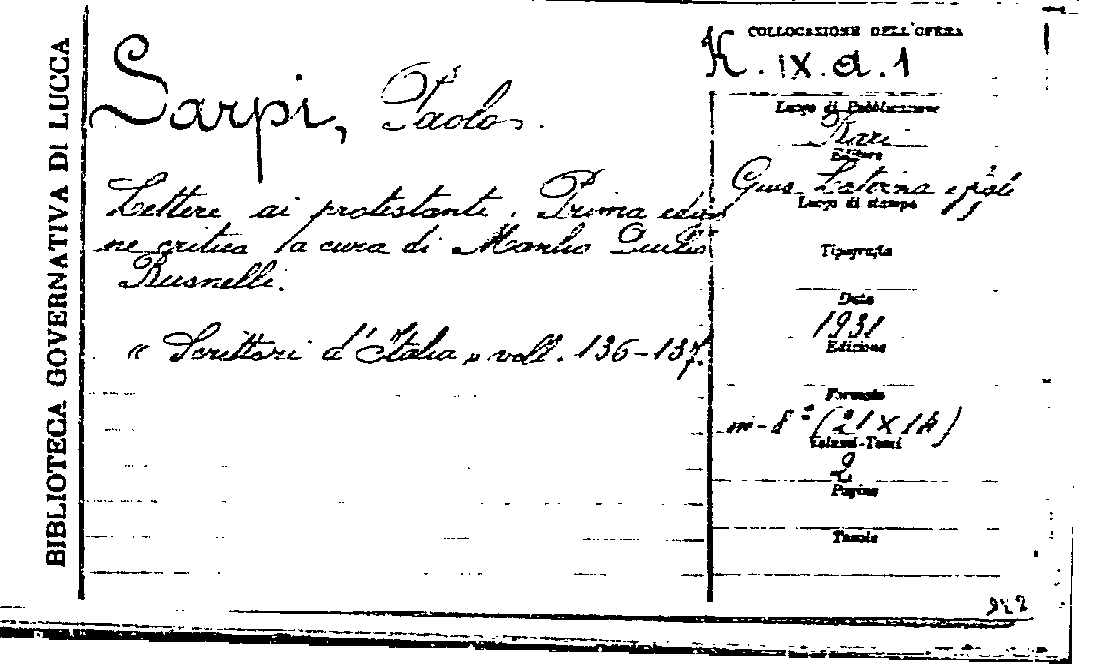 BIBLIOTECA GOVERNATIVA DI LUCCA
Sarpi, Paolo.
Lettere ai protestanti. Prima edizio
ne critica a cura di Manlio Duilio
Busnelli.
« Scrittori d'Italia » voll. 136-137.
COLLOCAZIONE DELL'OPERA
K.IX.d.1
Luogo di Pubblicazione
Bari
Editore
Gius. Laterza e figli
Luogo di stampa
Tipografia
Data
1931
Edizione
Formato
in-8° (21 X 14)
Volumi-Tomi
2
Pagine
Tavole